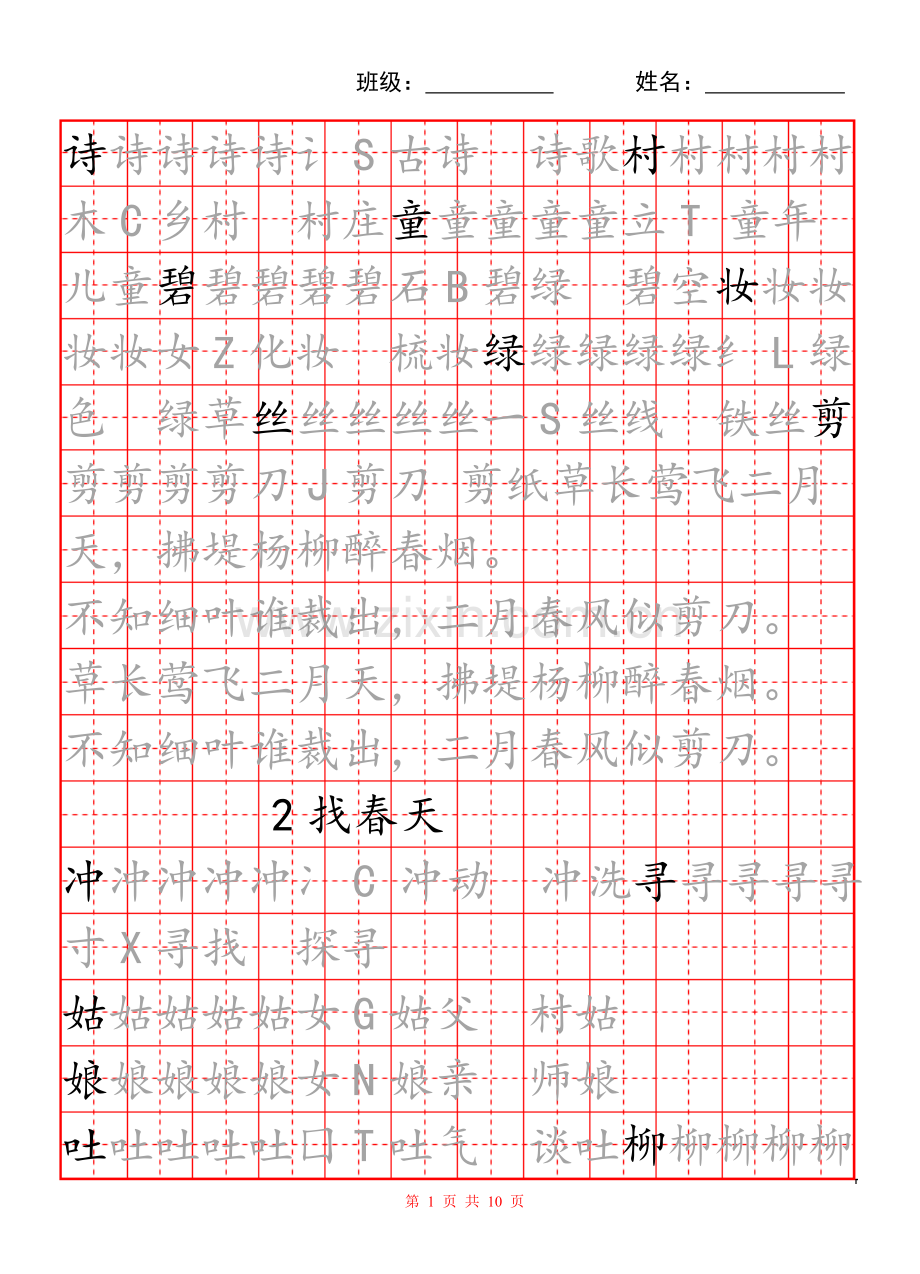 班级：__________ 姓名：__________
诗诗诗诗诗讠S古诗 诗歌村村村村村
木C乡村 村庄童童童童童立T 童年
儿童碧碧碧碧碧石B碧绿 碧空妆妆妆
妆妆女Z化妆 梳妆绿绿绿绿绿纟L绿
色 绿草丝丝丝丝丝一S丝线 铁丝剪
剪剪剪剪刀J剪刀 剪纸草长莺飞二月
天，拂堤杨柳醉春烟。
不知细叶谁裁出，二月春风似剪刀。
www.zixin.com.cn
草长莺飞二月天，拂堤杨柳醉春烟。
不知细叶谁裁出，二月春风似剪刀。
2找春天
冲冲冲冲冲冫C 冲动 冲洗寻寻寻寻寻
寸X寻找 探寻
姑姑姑姑姑女G 姑父 村姑
娘娘娘娘娘女N 娘亲 师娘
吐吐吐吐吐口T吐气 谈吐柳柳柳柳柳
第 1 页 共 10 页